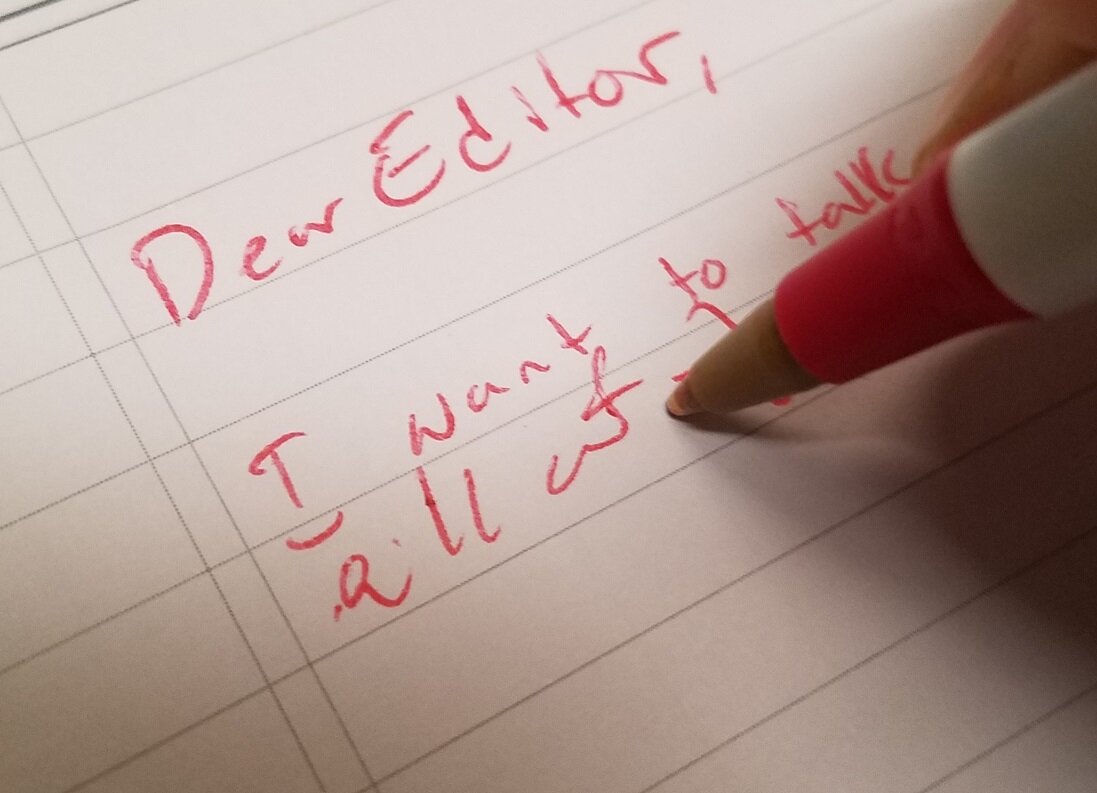 Dear Editor,
I want to talk
all of